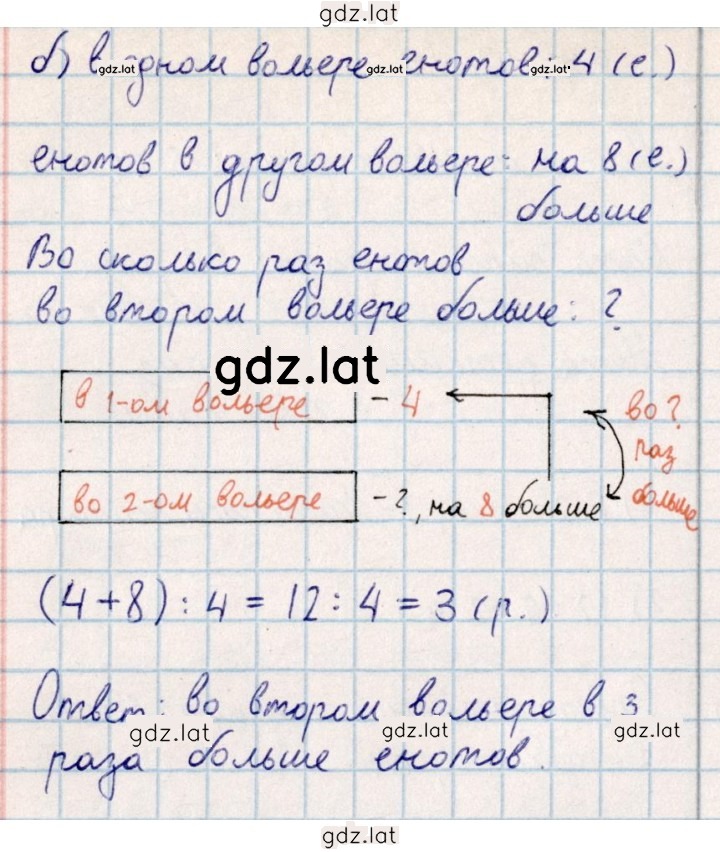 gdz.lat
б) в одном вольере енотов: 4 (е.)
gdz.lat gdz.lat gdz.lat
енотов в другом вольере: на 8 (е.)
больше
Во сколько раз енотов
во втором вольере больше: ?
gdz.lat
в 1-ом вольере - 4 во ?
раз
во 2-ом вольере - ?, на 8 больше больше
(4+8) : 4 = 12 : 4 = 3 (р.)
Ответ: во втором вольере в 3
gdz.lat gdz.lat gdz.lat
раза больше енотов.
gdz.lat